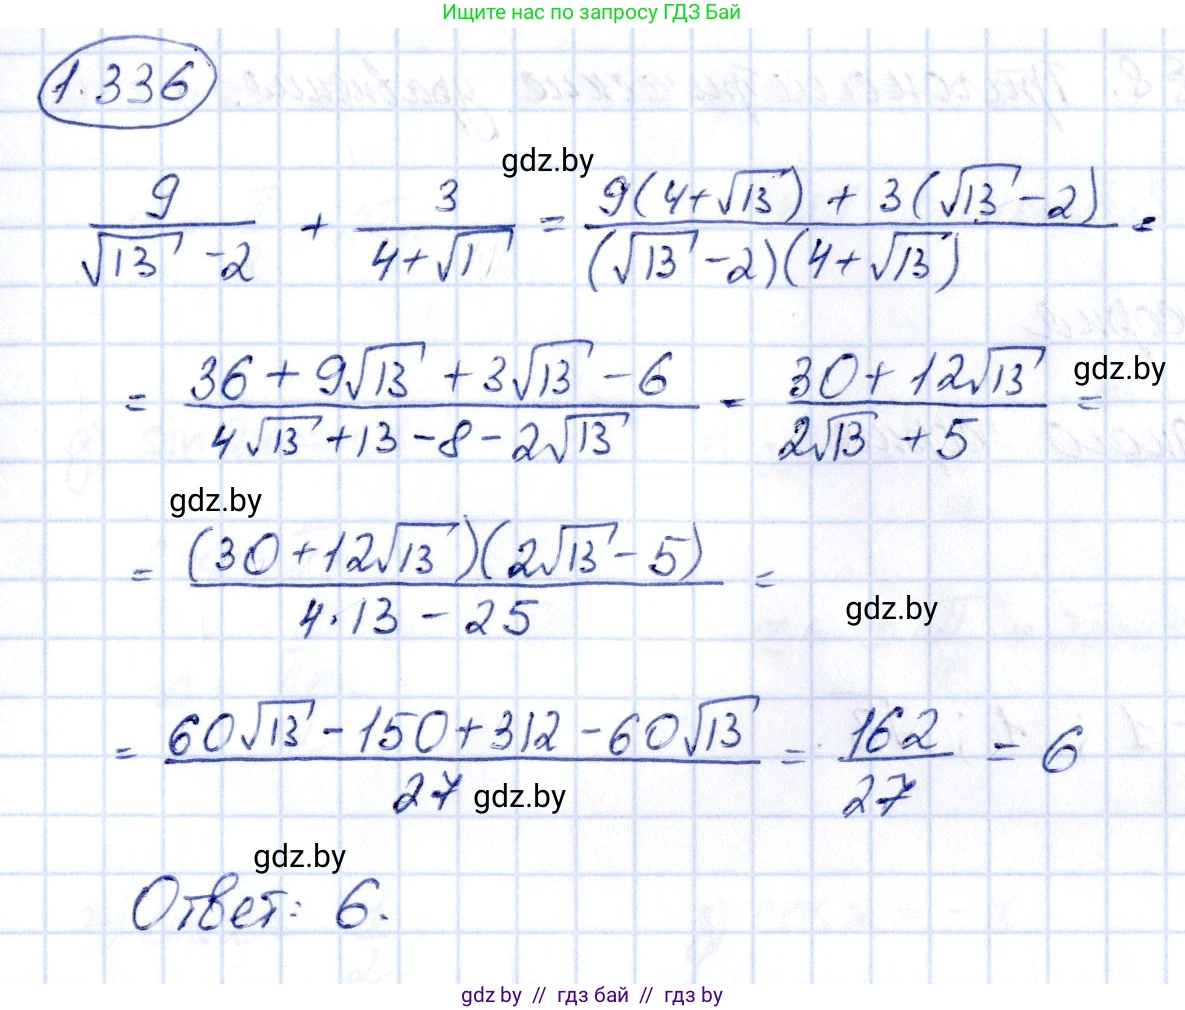 Ищите нас по запросу ГДЗ Бай
1.336
gdz.by
9/(√13 -2) + 3/(4+√1) = (9(4+√13) + 3(√13 -2))/((√13 -2)(4+√13)) =
= (36+9√13+3√13-6)/(4√13+13-8-2√13) = (30+12√13)/(2√13+5) =
gdz.by
gdz.by
= ((30+12√13)(2√13-5))/(4·13-25) =
gdz.by
= (60√13-150+312-60√13)/27 = 162/27 = 6
gdz.by
gdz.by
Ответ: 6.
gdz by // гдз бай // гдз by